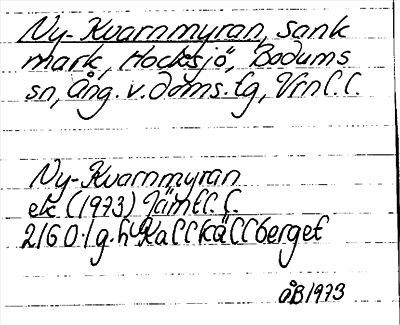 Ny-Kvarnmyran, sank
mark, Hocksjö, Bodums
sn, Ång. v. doms. lg, Vrnl. l.
Ny-Kvarnmyran
ek (1973) Jämtl. l.
2160. lg. h Kallkällberget
åB 1973